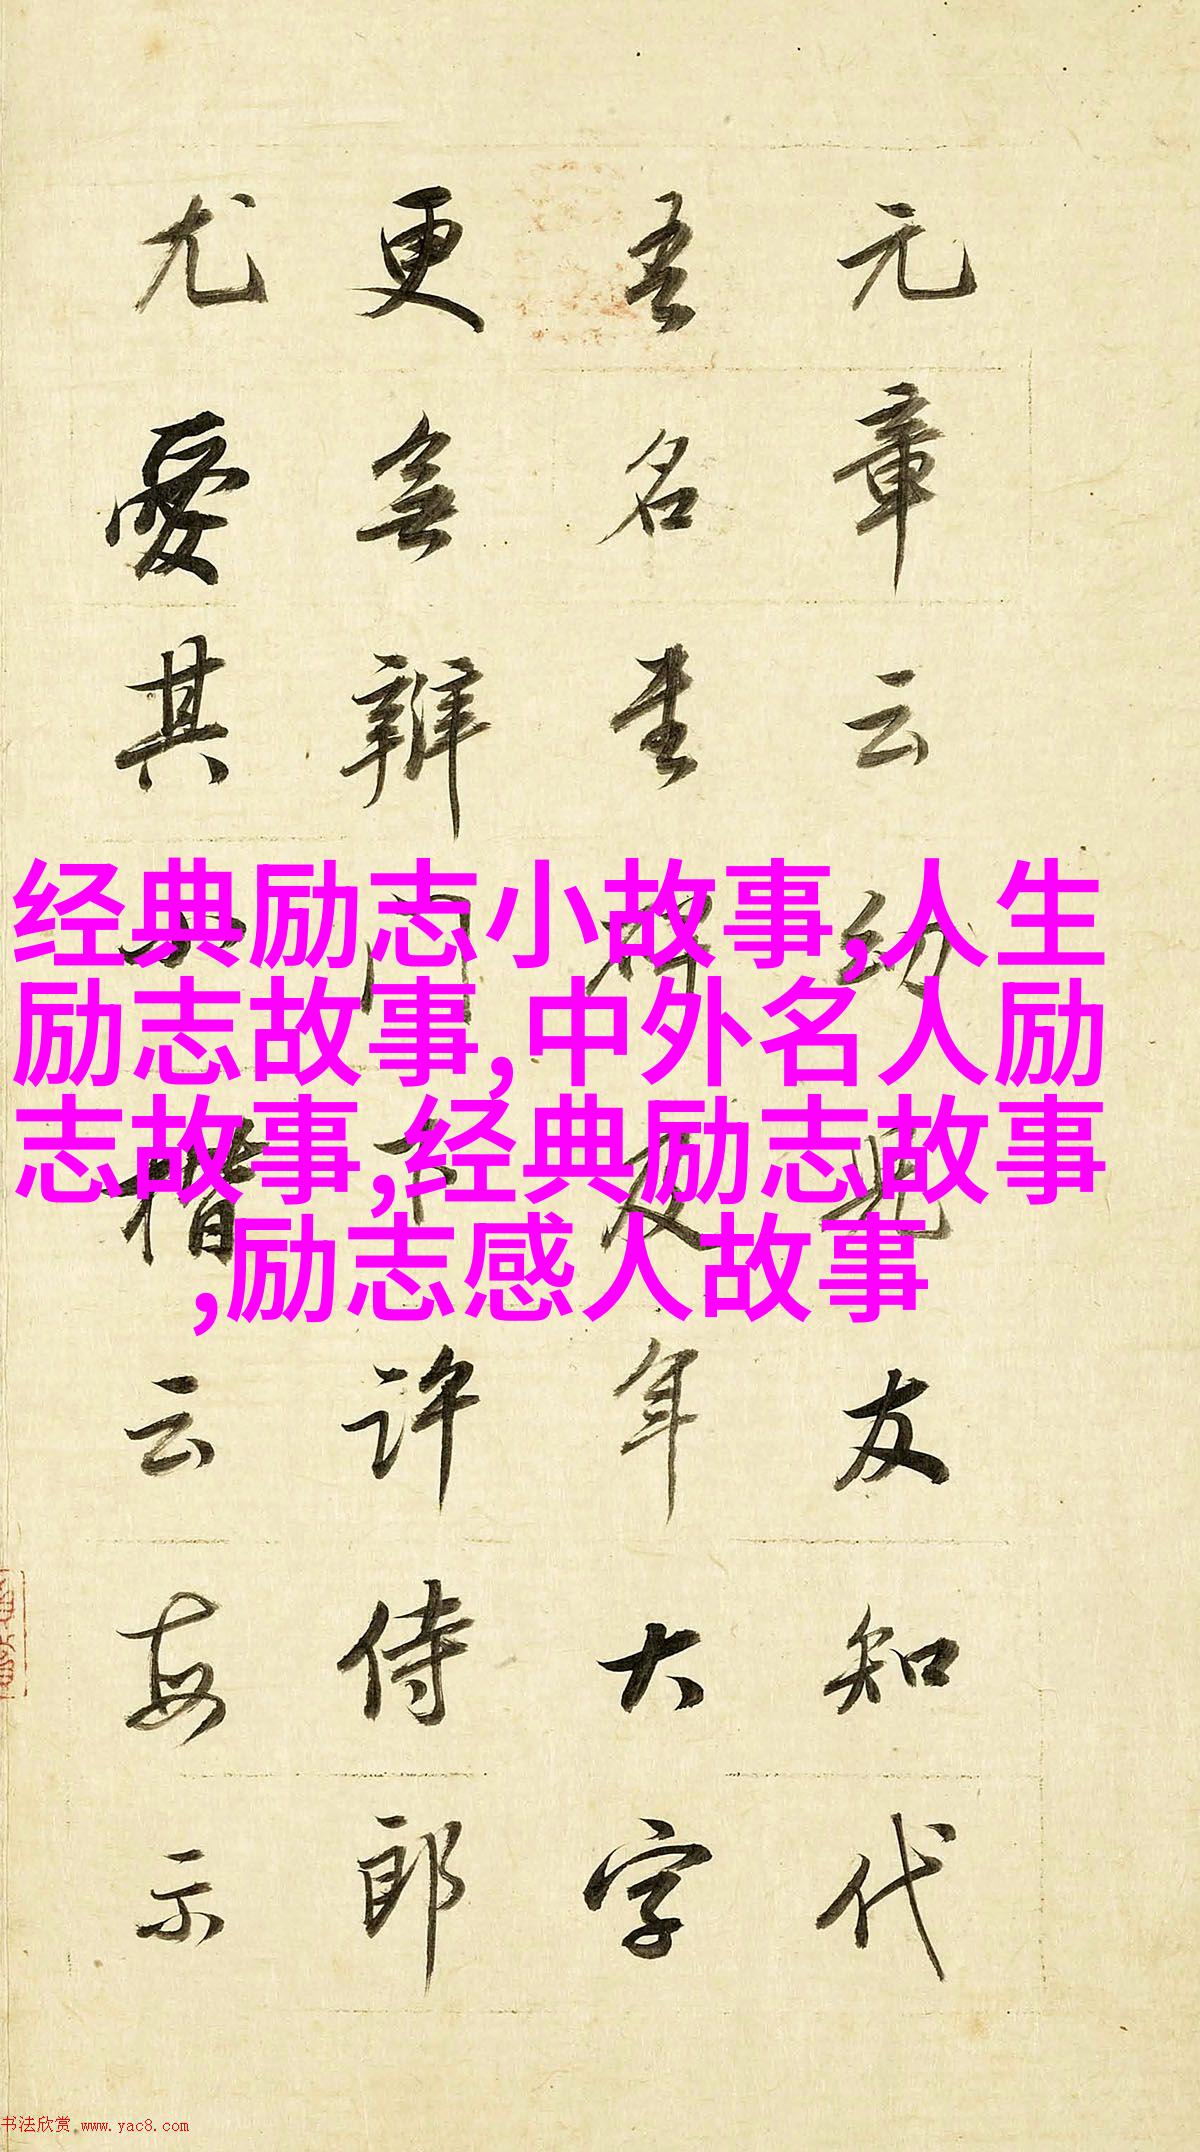 元章云幼兒友知代
吾名書碑及年大字
更無辨門下許侍郎
尤愛其小楷云每示
经典励志小故事,人生
励志故事,中外名人励
志故事,经典励志故事
,励志感人故事
书法欣赏.www.yac8.com